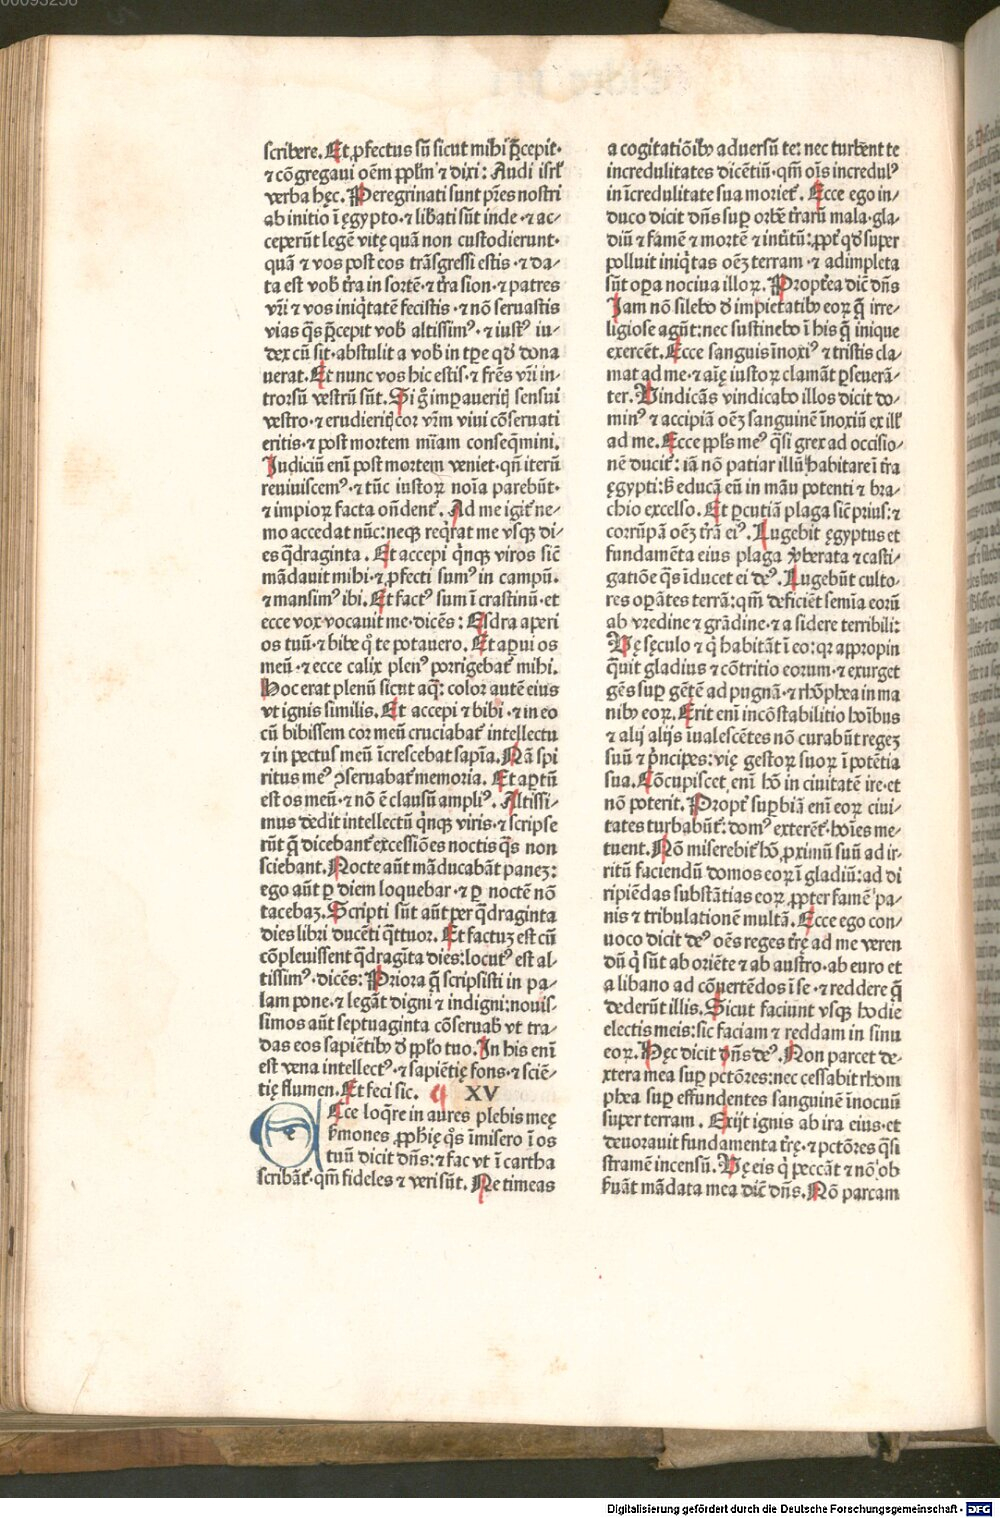 scribere. Et ꝓfectus sū sicut mihi p̄cepit·
⁊ cōgregaui oēm ppl̄m ⁊ dixi: Audi isrl̄
verba hęc. Peregrinati sunt pr̄es nostri
ab initio ī ęgypto·⁊ lib̄ati sūt inde·⁊ ac-
ceperūt legē vitę quā non custodierunt·
quā ⁊ vos post eos trāsgressi estis·⁊ da-
ta est vob̄ tr̄a in sortē·⁊ tr̄a sion·⁊ patres
vr̄i ⁊ vos iniq̇tatē fecistis·⁊ nō seruastis
vias q̄s p̄cepit vob̄ altissimꝰ·⁊ iustꝰ iu-
dex cū sit·abstulit a vob̄ in tꝑe qd̄ dona
uerat. Et nunc vos hic estis·⁊ fr̄es vr̄i in-
trorsū vestrū sūt. Si g̊ imꝑaueritꝭ sensui
vestro·⁊ erudieritꝭ cor vr̄m viui cōseruati
eritis·⁊ post mortem mīam conseq̄mini.
Iudiciū enī post mortem veniet·qn̄ iterū
reuiuiscemꝰ·⁊ tūc iustoꝝ noīa parebūt·
⁊ impioꝝ facta on̄dent̄. Ad me igit̄ ne-
mo accedat nūc: neqꝫ req̇rat me vsqꝫ di-
es q̄draginta. Et accepi q̇nqꝫ viros sic̄
mādauit mihi·⁊ ꝓfecti sumꝰ in campū.
⁊ mansimꝰ ibi. Et factꝰ sum ī crastinū·et
ecce vox vocauit me·dicēs: Esdra aperi
os tuū·⁊ bibe q̊ te potauero. Et aꝑui os
meū·⁊ ecce calix plenꝰ porrigebat̄ mihi.
Hoc erat plenū sicut aq̄: color autē eius
vt ignis similis. Et accepi ⁊ bibi·⁊ in eo
cū bibissem cor meū cruciabat̄ intellectu
⁊ in pectus meū īcrescebat sapīa. Nā spi
ritus meꝰ ꝯseruabat̄ memoria. Et aꝑtū
est os meū·⁊ nō ē clausū ampliꝰ. Altissi-
mus dedit intellectū q̇nqꝫ viris·⁊ scripse
rūt q̄ dicebant̄ excessiōes noctis q̄s non
sciebant. Nocte aūt māducabāt paneꝫ:
ego aūt ꝑ diem loquebar·⁊ ꝑ noctē nō
tacebaꝫ. Scripti sūt aūt per q̄draginta
dies libri ducēti q̄ttuor. Et factuꝫ est cū
cōpleuissent q̄dragīta dies: locutꝰ est al-
tissimꝰ·dicēs: Priora q̄ scripsisti in pa-
lam pone·⁊ legāt digni ⁊ indigni: nouis-
simos aūt septuaginta cōseruab̄ vt tra-
das eos sapiētibꝰ d̄ pplo tuo. In his enī
est vena intellectꝰ·⁊ sapiētię fons·⁊ sciē-
tię flumen. Et feci sic. ¶ XV
Ecce loq̄re in aures plebis meę
ẜmones ꝓphīę q̊s īmisero ī os
tuū dicit dn̄s: ⁊ fac vt ī cartha
scribāt̄·qm̄ fideles ⁊ veri sūt. Ne timeas
a cogitatiōibꝰ aduersū te: nec turbent te
incredulitates dicētiū·qm̄ oīs incredulꝰ
in īcredulitate sua moriet̄. Ecce ego in-
duco dicit dn̄s suꝑ orbē tr̄arū mala·gla-
diū ⁊ famē ⁊ mortē ⁊ int̄itū: ꝓpt̄ qd̄ super
polluit iniq̇tas oēꝫ terram·⁊ adimpleta
sūt oꝑa nociua illoꝝ. Propt̄ea dic̄ dn̄s
Iam nō silebo d̄ impietatibꝰ eoꝝ q̄ irre-
ligiose agūt: nec sustinebo ī his q̄ inique
exercēt. Ecce sanguis īnoxiꝰ ⁊ tristis cla-
mat ad me·⁊ aīę iustoꝝ clamāt ꝑseuerā-
ter. Vindicās vindicabo illos dicit do-
minꝰ ⁊ accipiā oēꝫ sanguinē īnoxiū ex ill̄
ad me. Ecce ppl̄s meꝰ q̄si grex ad occisio-
nē ducit̄: iā nō patiar illū habitare ī tr̄a
ęgypti: ẜ educā eū in māu potenti ⁊ bra-
chio excelso. Et ꝑcutiā plaga sic̄ prius: ⁊
corrūpā oēꝫ tr̄ā eiꝰ. Lugebit ęgyptus et
fundamēta eius plaga v̄berata ⁊ casti-
gatiōe q̄s īducet ei deꝰ. Lugebūt culto-
res oꝑātes terrā: qm̄ deficiēt semīa eorū
ab vredine ⁊ grādine·⁊ a sidere terribili:
Vę sęculo ⁊ q̇ habitāt ī eo: qꝛ appropin
q̄uit gladius ⁊ cōtritio eorum·⁊ exurget
gēs suꝑ gētē ad pugnā·⁊ rhōphea in ma
nibꝰ eoꝝ. Erit enī incōstabilitio hoībus
⁊ alij alijs īualescētes nō curabūt regeꝫ
suū ⁊ ṗncipes: vię gestoꝝ suoꝝ ī potētia
sua. Cōcupiscet enī hō in ciuitatē ire·et
nō poterit. Propt̄ suꝑbiā enī eoꝝ ciui-
tates turbabūt̄: domꝰ exterēt̄·hoīes me-
tuent. Nō miserebit̄ hō ꝓximū suū ad ir-
ritū faciendū domos eoꝝ ī gladiū: ad di
ripiēdas substātias eoꝝ ꝓpter famē pa-
nis ⁊ tribulationē multā. Ecce ego con-
uoco dicit deꝰ oēs reges tr̄ę ad me veren
dū q̇ sūt ab oriēte ⁊ ab austro·ab euro et
a libano ad cōuertēdos ī se·⁊ reddere q̄
dederūt illis. Sicut faciunt vsqꝫ hodie
electis meis: sic faciam ⁊ reddam in sinu
eoꝝ. Hęc dicit dn̄s deꝰ. Non parcet de-
xtera mea suꝑ pctōres: nec cessabit rhom
phea suꝑ effundentes sanguinē īnocuū
super terram. Exijt ignis ab ira eius·et
deuorauit fundamenta tr̄ę·⁊ pctōres q̄si
stramē incensū. Vę eis q̇ peccāt ⁊ nō ob
ẜuāt mādata mea dic̄ dn̄s. Nō parcam
Digitalisierung gefördert durch die Deutsche Forschungsgemeinschaft - DFG